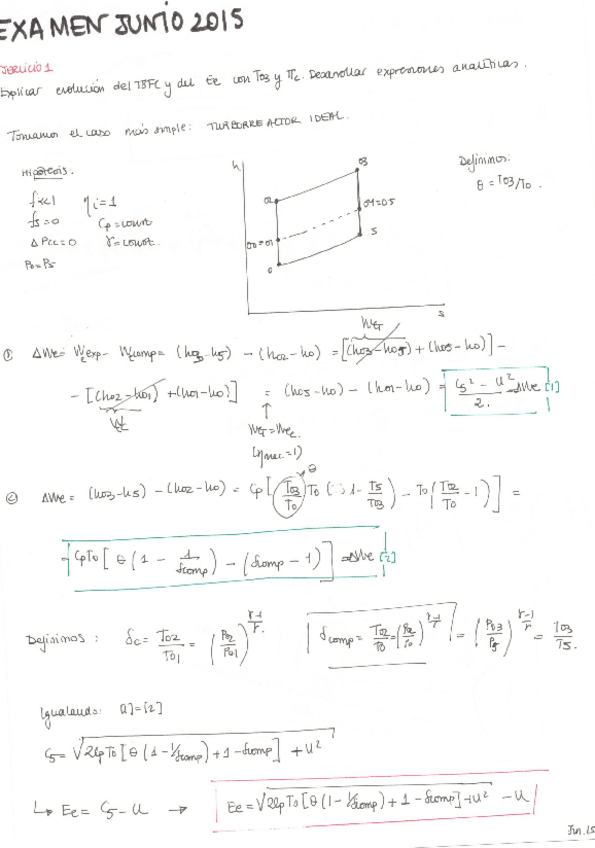 EXAMEN JUNIO 2015
EJERCICIO 1
Explicar evolución del TSFC y del Ee con T03 y πc. Desarrollar expresiones analíticas.
Tomamos el caso más simple: TURBORREACTOR IDEAL.
Hipótesis.
f<<1
ηi=1
fs=0
Cp=const
ΔPcc=0
γ=const.
P0=P5
h
03
02
04=05
00=01
5
0
s
Definimos:
θ=T03/T0.
① ΔWe= Wexp- Wcomp= (h03-h5) - (h02-h0) = [(h03-h05) + (h05-h0)] -
- [(h02-h01) + (h01-h0)] = (h05-h0) - (h01-h0) = C5² - U² / 2. ΔWe [1]
(ηmec=1)
② ΔWe= (h03-h5) - (h02-h0) = Cp[ T03/T0 T0 (1- T5/T03) - T0( T02/T0 - 1)] =
= CpT0 [ θ (1 - 1/δcomp) - (δcomp - 1)] ΔWe [2]
Definimos: δc= T02/T01 = (P02/P01)^γ-1/γ. δcomp= T02/T0 = (P02/P0)^γ-1/γ = (P03/P5)^γ-1/γ = T03/T5.
Igualando: [1]=[2]
C5= √2CpT0 [θ (1-1/δcomp) + 1-δcomp] + U²
↳ Ee= C5 - U → Ee=√2CpT0[θ(1-1/δcomp) + 1-δcomp] + U² - U
Jun.15